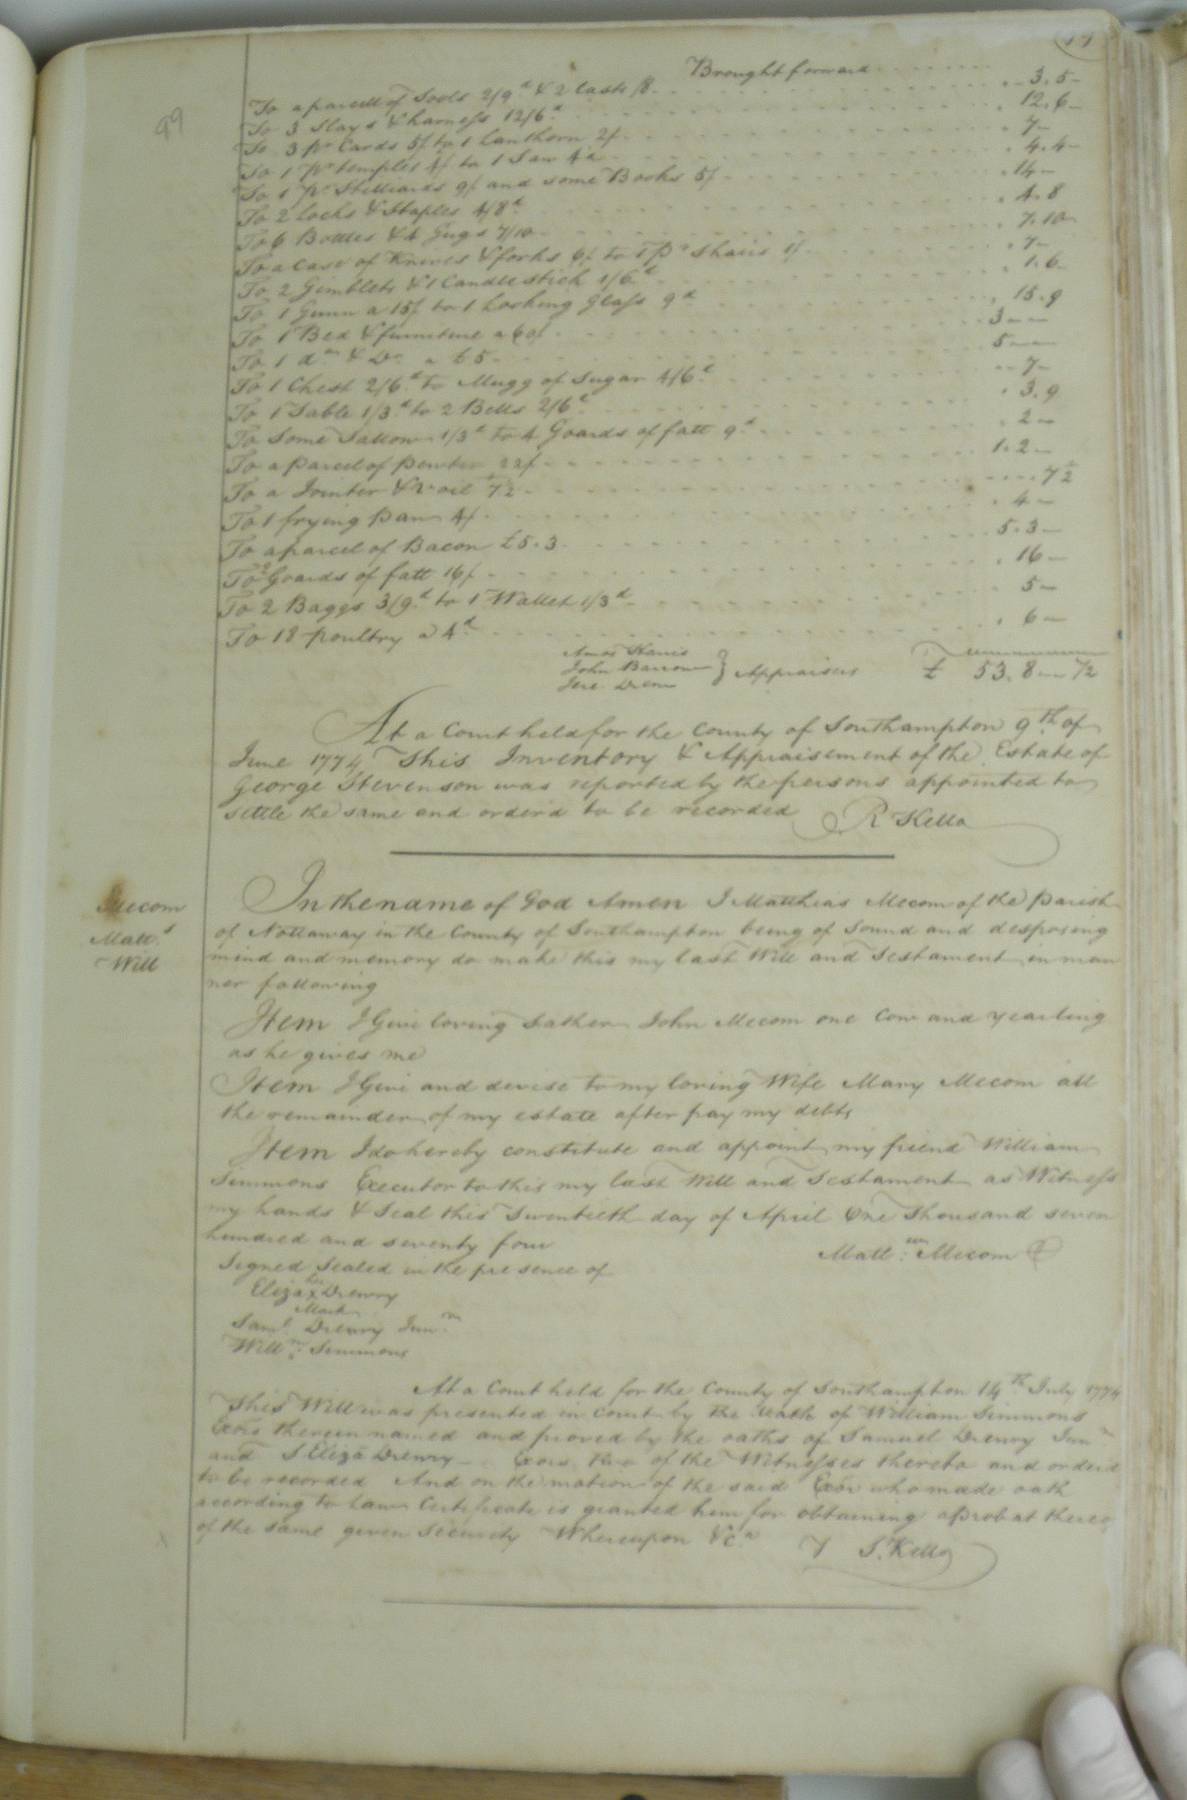 99
Brought forward
To a parcell of Tools 2/9d & 2 Casks /8 3.5
To 3 Slays & harness 12/6d 12.6
To 3 pr Cards 5/ to 1 Lanthorn 2/ 7
To 1 pr temples 4/ to 1 Saw 4d 4.4
To 1 pr Stilliards 9/ and some Books 5/ 14
To 2 locks & Staples 4/8d 4.8
To 6 Bottles & 4 Jugs 7/10 7.10
To a Case of Knives & forks 6/ to 1 pr Shairs 1/ 7
To 2 Gimblets & 1 Candlestick 1/6d 1.6
To 1 Gunn a 15/ to 1 Looking Glass 9d 15.9
To 1 Bed & furniture a 60/ 3
To 1 do & Do a £5 5
To 1 Chest 2/6d to Mugg of Sugar 4/6d 7
To 1 Table 1/3d to 2 Bells 2/6d 3.9
To Some Tallow 1/3d to 4 Goards of fatt 9d 2
To a parcel of pewter 22/ 1.2
To a Jointer & 7½ 7½
To 1 frying pan 4/ 4
To a parcel of Bacon £5.3 5.3
To 2 Goards of fatt 16/ 16
To 2 Baggs 3/9d to 1 Wallet 1/3d 5
To 18 poultry a 4d 6
Amos Harris
John Barrow } Appraisers £ 53.8 7½
Jere. Drew
At a Court held for the County of Southampton 9th of
June 1774 This Inventory & Appraisement of the Estate of
George Stevenson was reported by the persons appointed to
settle the same and orderd to be recorded R Kello
Mecom
Matt.s
Will
In the name of God Amen I Matthias Mecom of the parish
of Nottaway in the County of Southampton being of Sound and desposing
mind and memory do make this my last Will and Testament in man
ner following
Item I Give loving Father John Mecom one Cow and yearling
as he gives me
Item I Give and devise to my loving Wife Mary Mecom all
the remainder of my estate after pay my debts
Item I do hereby constitute and appoint my friend William
Simmons Executor to this my last Will and Testament as Witness
my hands & Seal this Twentieth day of April One Thousand seven
hundred and seventy four Matt. Mecom
Signed Sealed in the presence of
Eliza her x Drewry
Mark
Saml. Drewry Junr
Willm. Simmons
At a Court held for the County of Southampton 14th July 1774
This Will was presented in court by the oath of William Simmons
Exor therein named and proved by the oaths of Samuel Drewry Junr
and Eliza Drewry two of the Witnesses thereto and orderd
to be recorded And on the motion of the said Exor who made oath
according to Law Certificate is granted him for obtaining a Probat thereo
of the same given Security Whereupon &c.a S. Kello